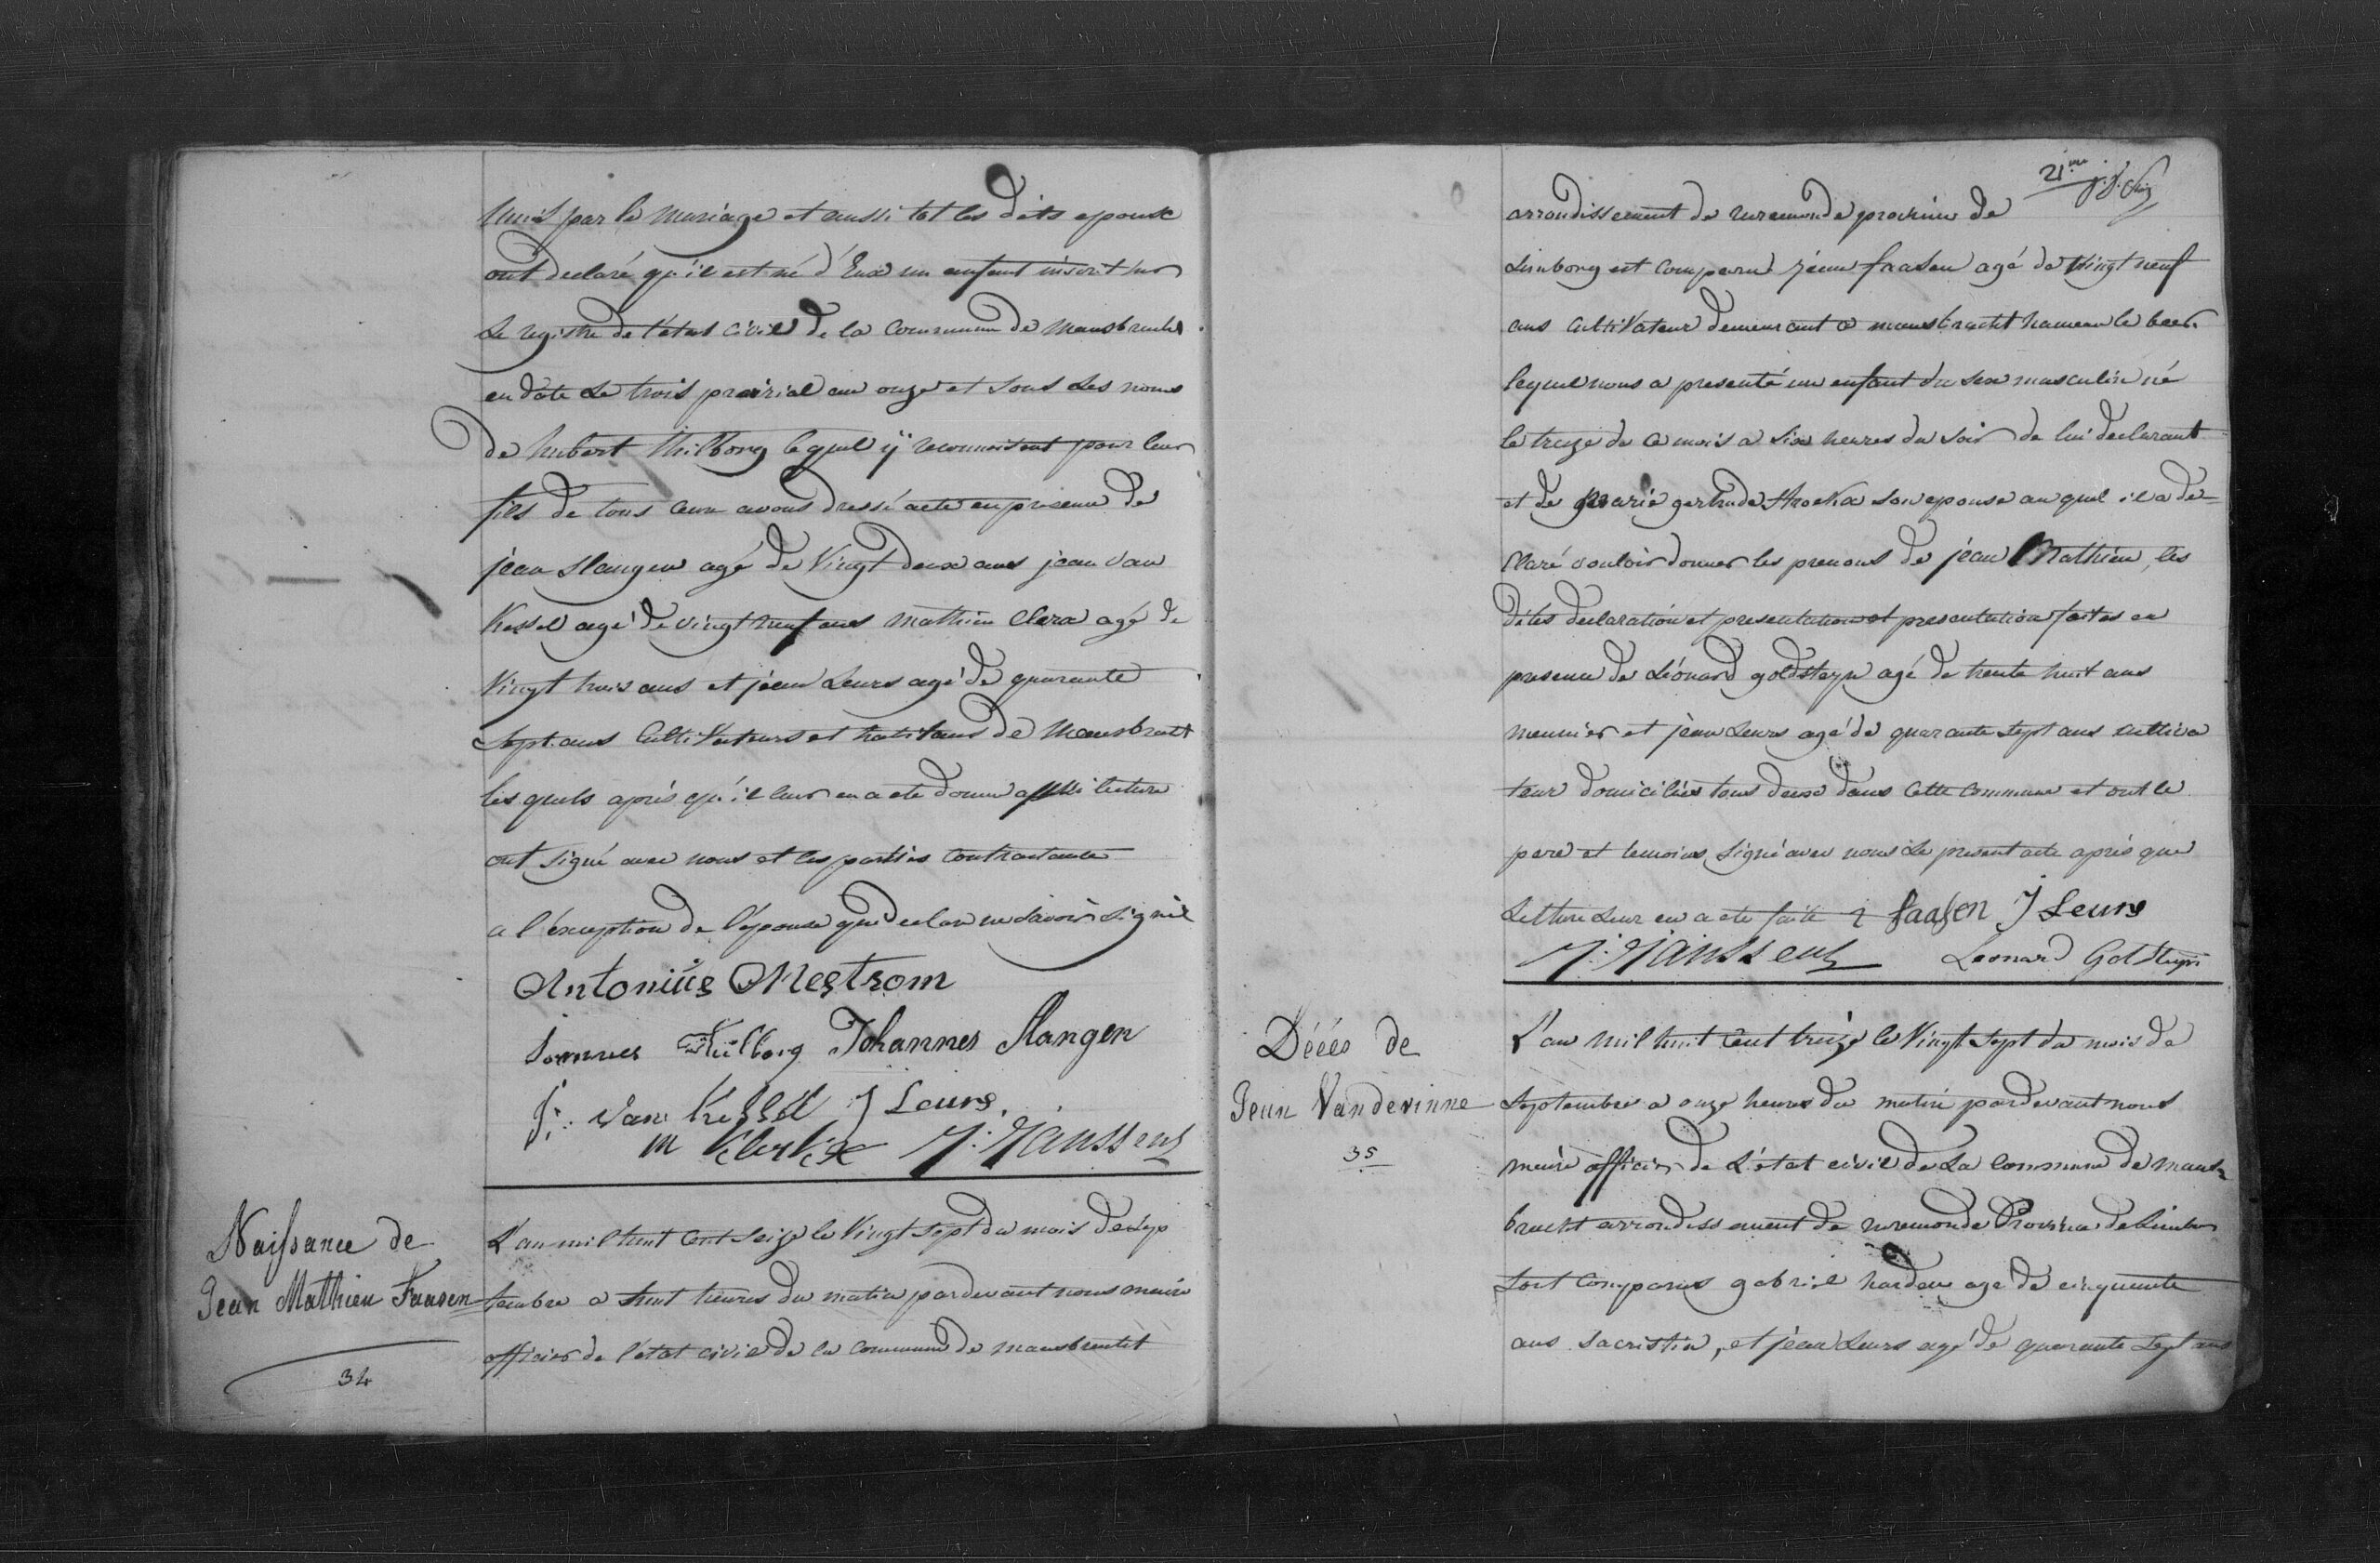 unis par le mariage et aussi tot les dits epoux
ont declaré qu'il est né d'Eux un enfant inscrit sur
Le registre de l'etat civil de la commune de Mansbracht
en date de trois prairial an onze et sous les noms
de hubert Thilborg lequel ij reconnoissent pour leur
fils de tous ceux avons dressé acte en presence de
jean slangen agé de Vingt deux ans jean van
Kessel agé de vingt neuf ans mathieu Clerx agé de
Vingt trois ans et jéan Leurs agé de quarante
sept ans Cultivateurs et habitans de Mansbracht
les quels aprés qu'il leur en a ete donné lecture
ont signé avec nous et les parties contractantes
a l'éxception de l'épouse qui declare ne savoir signée
Antoniüs Mestrom
Thilborg Johannes Slangen
J: van Kessel J Leurs.
m Klerkx J: Janssens
Naissance de
Jean Mathieu Faasen
34
L'an mil huit Cent Seize le Vingt Sept du mois de sep
tembre a huit heures du matin pardevant nous maire
officier de l'état civil de la commune de mansbracht
21.me
arrondissement de ruremonde province de
Limborg est comparu jéan faasen agé de Vingt neuf
ans Cultivateur demeurant a mansbracht hameau le beer
lequel nous a presenté un enfant du sex masculin né
le treize de ce mois a Six heures du soir de lui declarant
et de marie gertrude son epouse au quel il a de-
claré vouloir donner les prenoms de jéan Mathieu, les
dites declaration et presentation et presentation faites en
presence de Léonard goldsteyn agé de trente huit ans
meunier et jéan Leurs agé de quarante sept ans cultiva
teur domiciliés tous deux dans cette commune et ont le
pere et temoins, signé avec nous le present acte aprés que
Lecture Leur en a ete faite faasen J Leurs
J: Janssens Leonard Goldsteyn
Décés de
Jean Vandevinne
35
L'an mil huit Cent treize le Vingt Sept du mois de
Septembre a onze heures du matin pardevant nous
maire officier de L'état civil de La Commune de mans-
bracht arrondissement de ruremonde Province de Limbor
sont comparus gabriel hardew age de cinquante
ans sacristin, et jéan Leurs agé de quarante sept ans